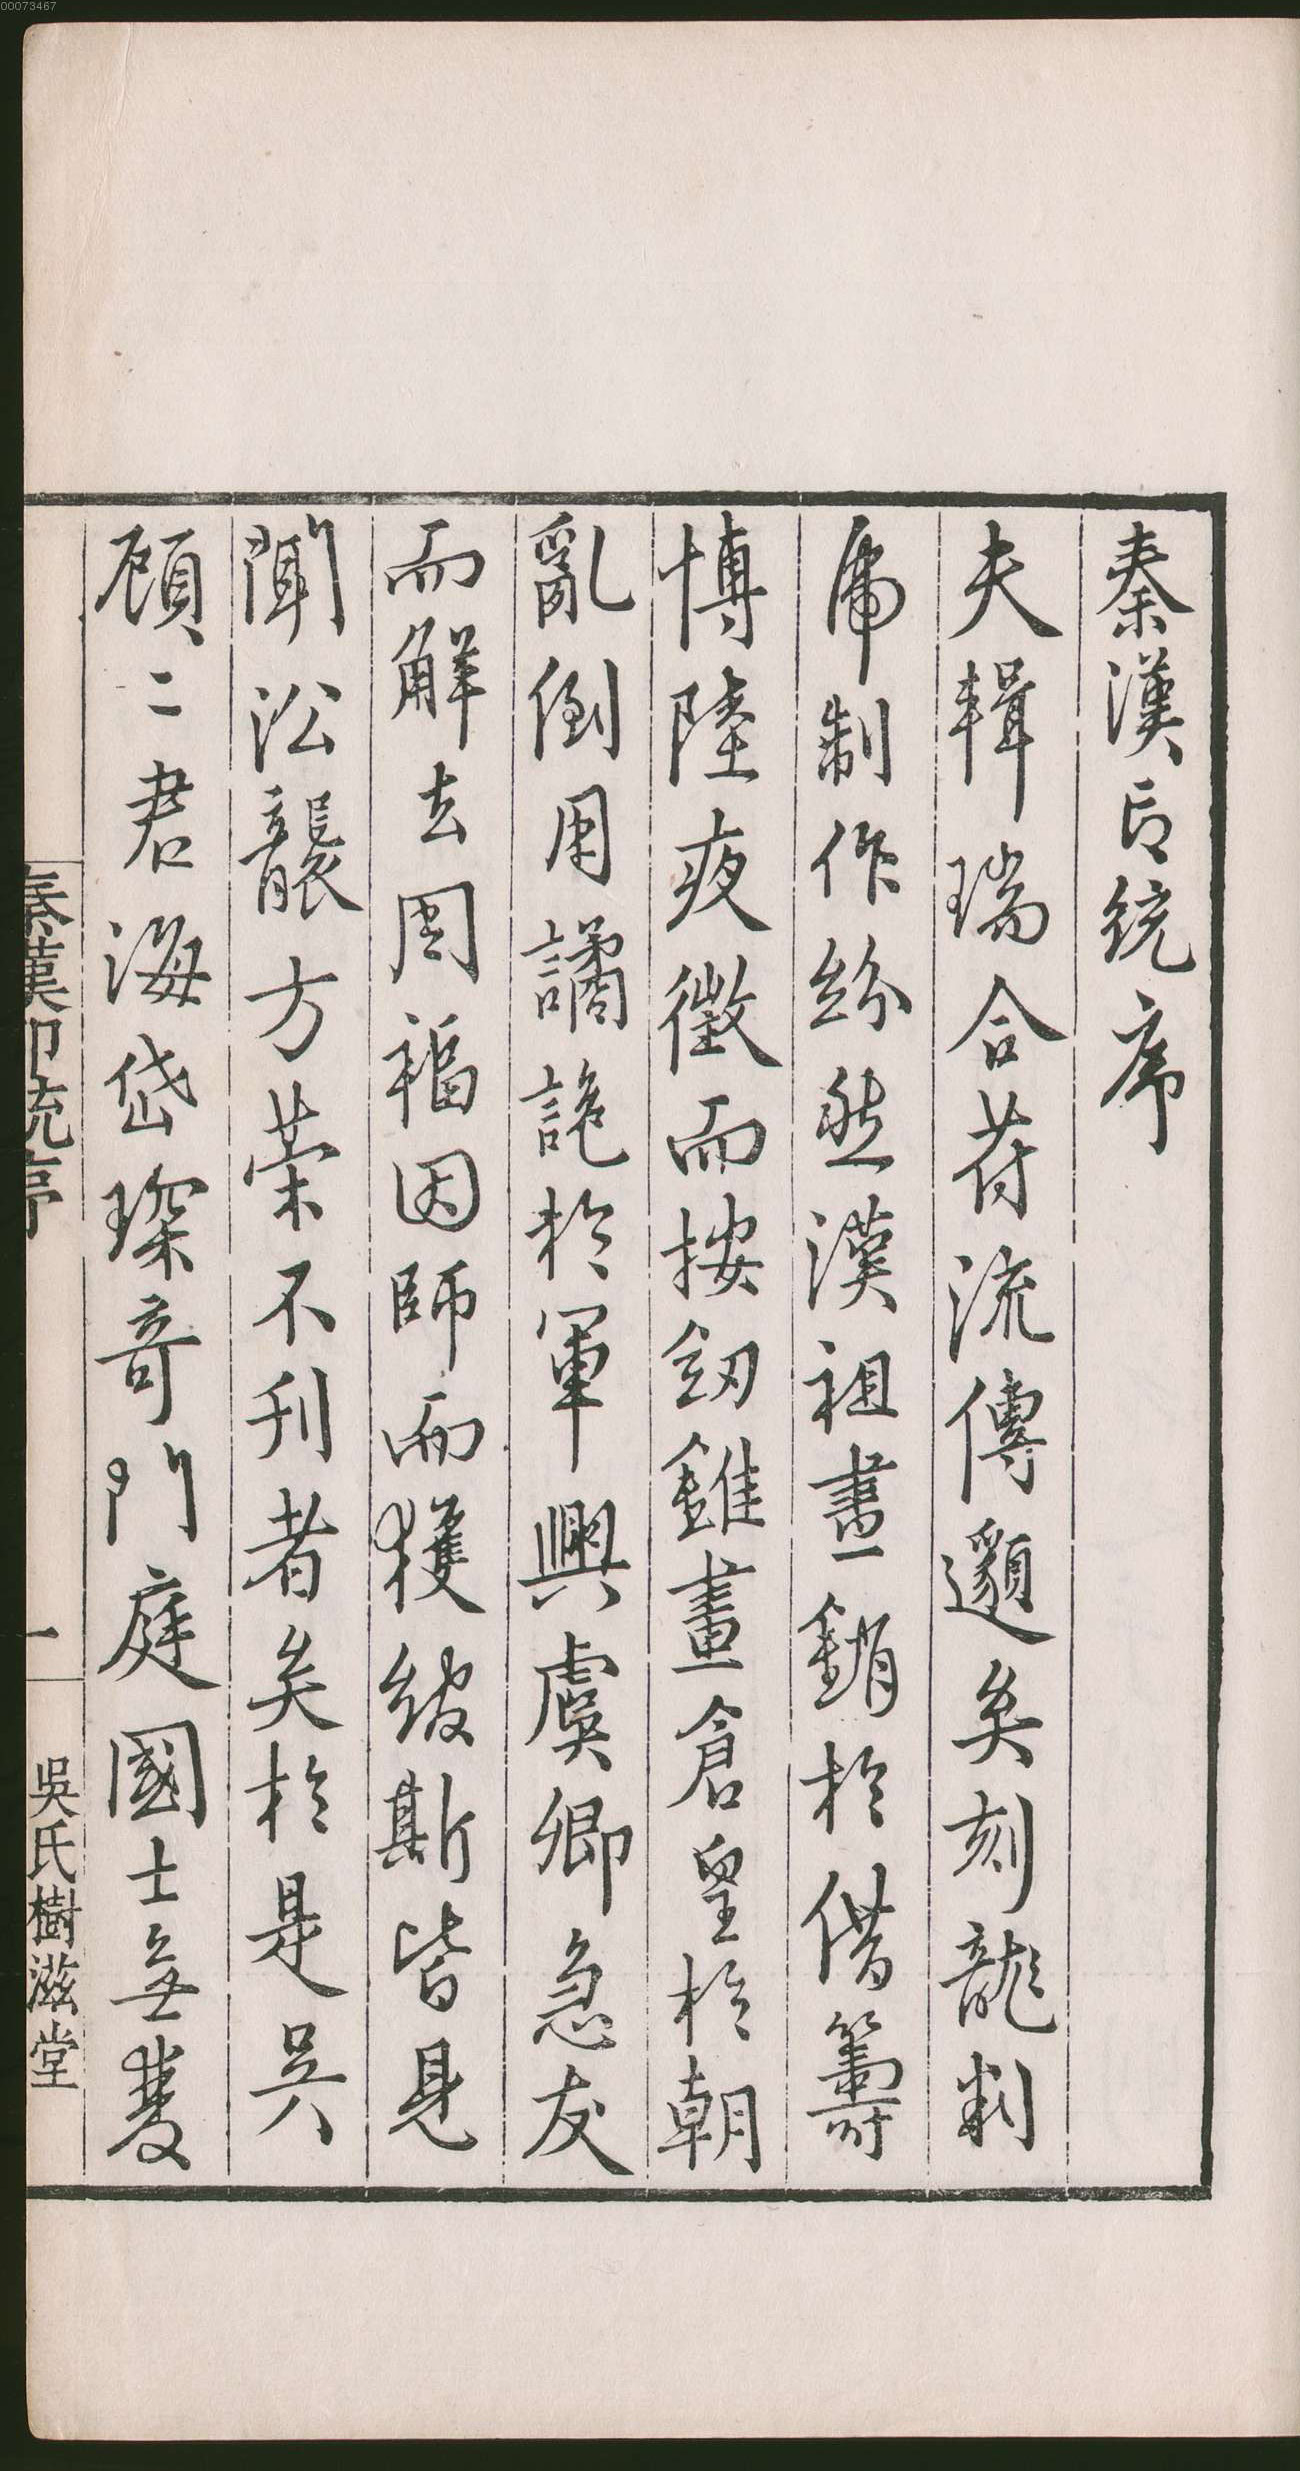 00073467
秦漢印統序
夫輯瑞合符流傳邈矣刻龍判
虎制作紛然漢祖畫銷於借籌
博陸夜徵而按劒錐畫倉皇於朝
亂倒用譎詭於軍興虞卿急友
而解去周福因師而獲綬斯皆見
聞沿襲方策不刊者矣於是吴
顧二君海岱琛奇門庭國士無雙
秦漢印統序
一
吳氏樹滋堂